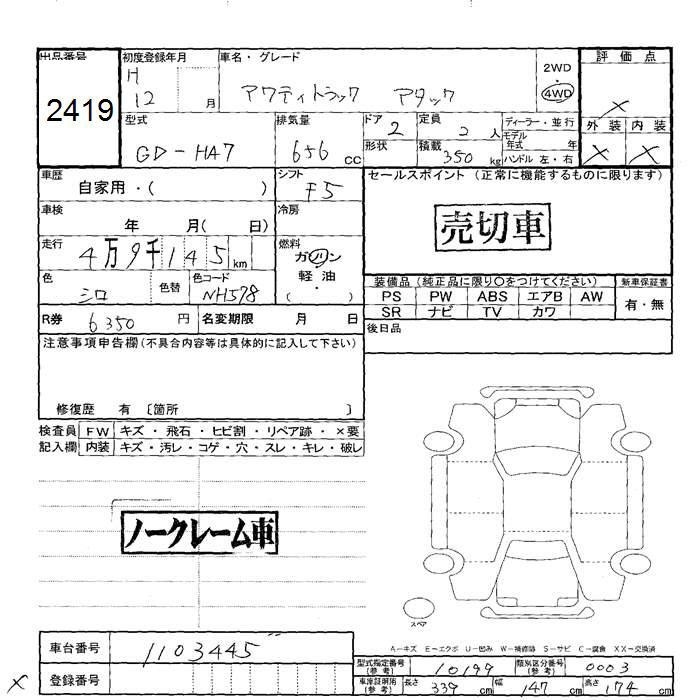 出品番号
2419
初度登録年月
H
12 月
車名・グレード
アクティトラック アタック
2WD
・
4WD
評価点
×
外装 内装
× ×
型式
GD-HA7
排気量
656 cc
ドア 2
形状
定員 2 人
積載 350 kg
ディーラー・並行
モデル
年式 年
ハンドル 左・右
車歴
自家用・( )
シフト
F5
セールスポイント(正常に機能するものに限ります)
売切車
車検
年 月( 日)
冷房
走行
4万9千145 km
燃料
ガソリン
軽・油
( )
色
シロ
色替
色コード
NH578
装備品(純正品に限り〇をつけてください) 新車保証書
PS PW ABS エアB AW
SR ナビ TV カワ
有・無
R券 6350 円
名変期限 月 日
後日品
注意事項申告欄(不具合内容等は具体的に記入して下さい)
修復歴 有 〔箇所 〕
検査員
記入欄
FW キズ・飛石・ヒビ割・リペア跡・×要
内装 キズ・汚レ・コゲ・穴・スレ・キレ・破レ
ノークレーム車
スペア
A-キズ E-エクボ U-凹み W-補修跡 S-サビ C-腐食 XX-交換済
車台番号 1103445
登録番号
×
型式指定番号
(参考)
10199
類別区分番号
(参考)
0003
車庫証明用
(参考)
長さ 339 cm 幅 147 cm 高さ 174 cm